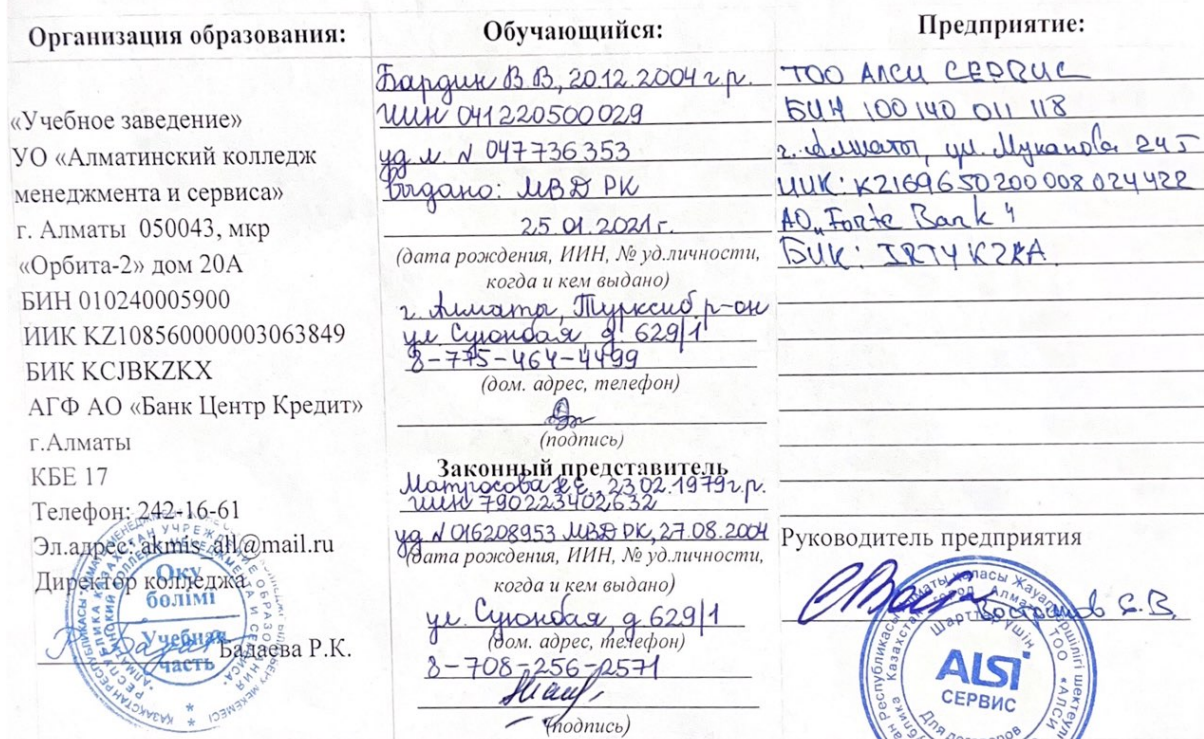 Организация образования:
«Учебное заведение»
УО «Алматинский колледж
менеджмента и сервиса»
г. Алматы 050043, мкр
«Орбита-2» дом 20А
БИН 010240005900
ИИК KZ108560000003063849
БИК KCJBKZKX
АГФ АО «Банк Центр Кредит»
г.Алматы
КБЕ 17
Телефон: 242-16-61
Эл.адрес: akmis_all@mail.ru
Директор колледжа
Бадаева Р.К.
Оку
бөлімі
Учебная
часть
Обучающийся:
Бардин В.В., 20.12.2004 г.р.
ИИН 041220500029
уд.л. № 047736353
выдано: МВД РК
25.01.2021г.
(дата рождения, ИИН, № уд.личности,
когда и кем выдано)
г. Алматы, Турксиб р-он
ул Суюнбая, д. 629/1
8-775-464-4499
(дом. адрес, телефон)
(подпись)
Законный представитель
Матросова Н.С., 23.02.1979г.р.
ИИН 790223402632
уд № 016208953 МВД РК, 27.08.2004
(дата рождения, ИИН, № уд.личности,
когда и кем выдано)
ул. Суюнбая, д 629/1
(дом. адрес, телефон)
8-708-256-2571
(подпись)
Предприятие:
ТОО АЛСИ СЕРВИС
БИН 100 140 011 118
г. Алматы, ул. Муканова 241
ИИК: KZ169650200008024422
АО „Forte Bank“
БИК: IRTYKZKA
Руководитель предприятия
Востриков С.В.
Шарттар үшін
ALSI
СЕРВИС
Для договоров